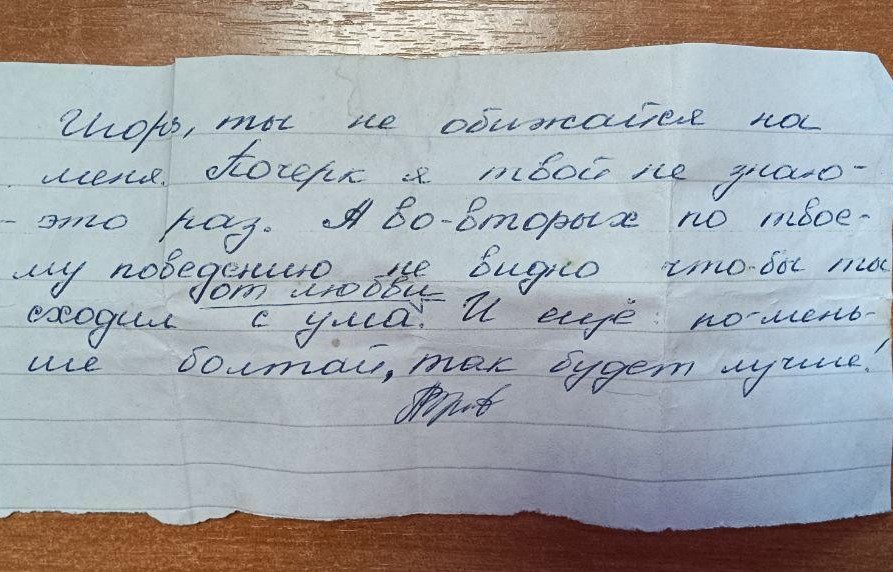 Игорь, ты не обижайся на
меня. Почерк я твой не знаю -
- это раз. А во-вторых по твое-
му поведению не видно что-бы ты
от любви
сходил с ума. И ещё по-мень-
ше болтай, так будет лучше!